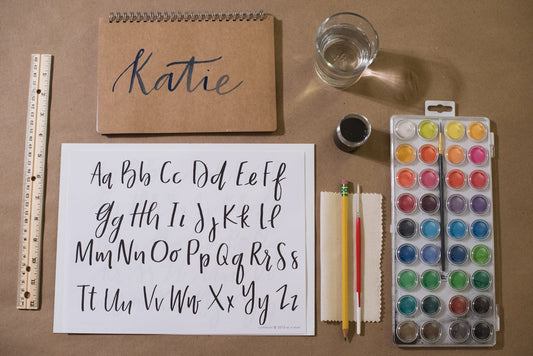 Katie
Aa Bb Cc Dd Ee Ff
Gg Hh Ii Jj Kk Ll
Mm Nn Oo Pp Qq Rr Ss
Tt Uu Vv Ww Xx Yy Zz